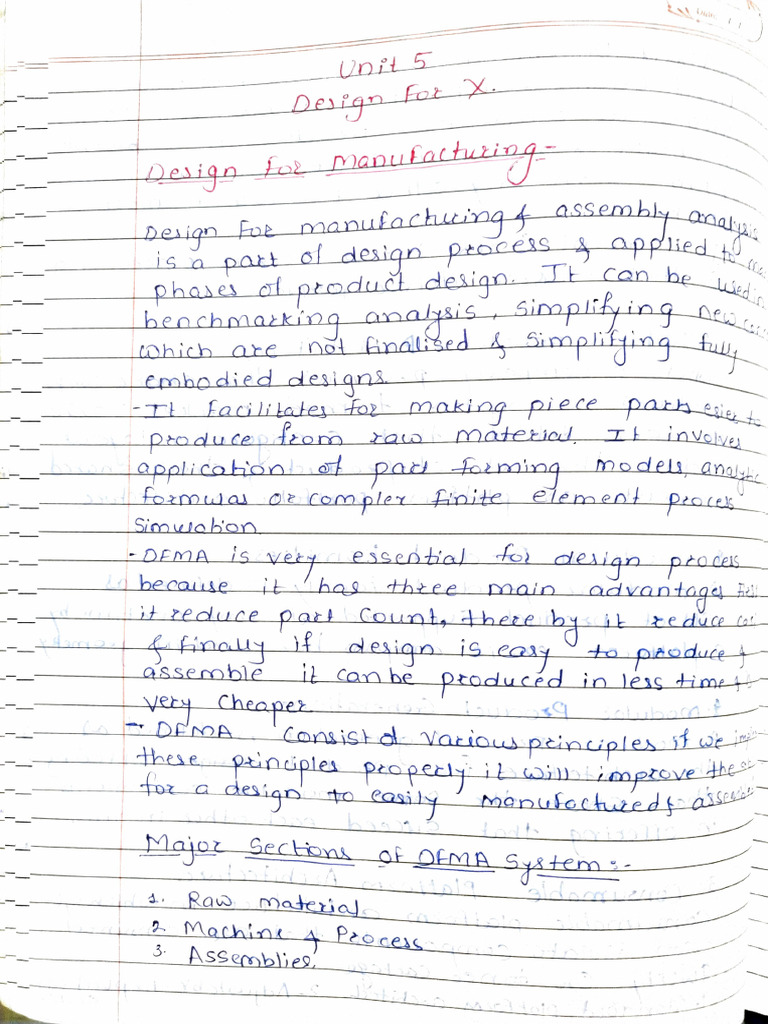 Unit 5
Design For X.
Design For Manufacturing -
Design For manufacturing & assembly analysis
is a part of design process & applied to
phases of product design. It can be used in
benchmarking analysis, simplifying new
which are not finalised & simplifying fully
embodied designs.
- It facilitates for making piece parts esier to
produce from raw material. It involves
application of part forming models, analytic
formulas or compler finite element process
simulation.
- DFMA is very essential for design process
because it has three main advantages
it reduce part count, there by it reduce
& finally if design is easy to produce &
assemble it can be produced in less time &
very cheaper.
- DFMA consist of various principles if we
these principles properly it will improve the
for a design to easily manufactured &
Major Sections of DFMA System :-
1. Raw material
2. Machine & Process
3. Assemblies.